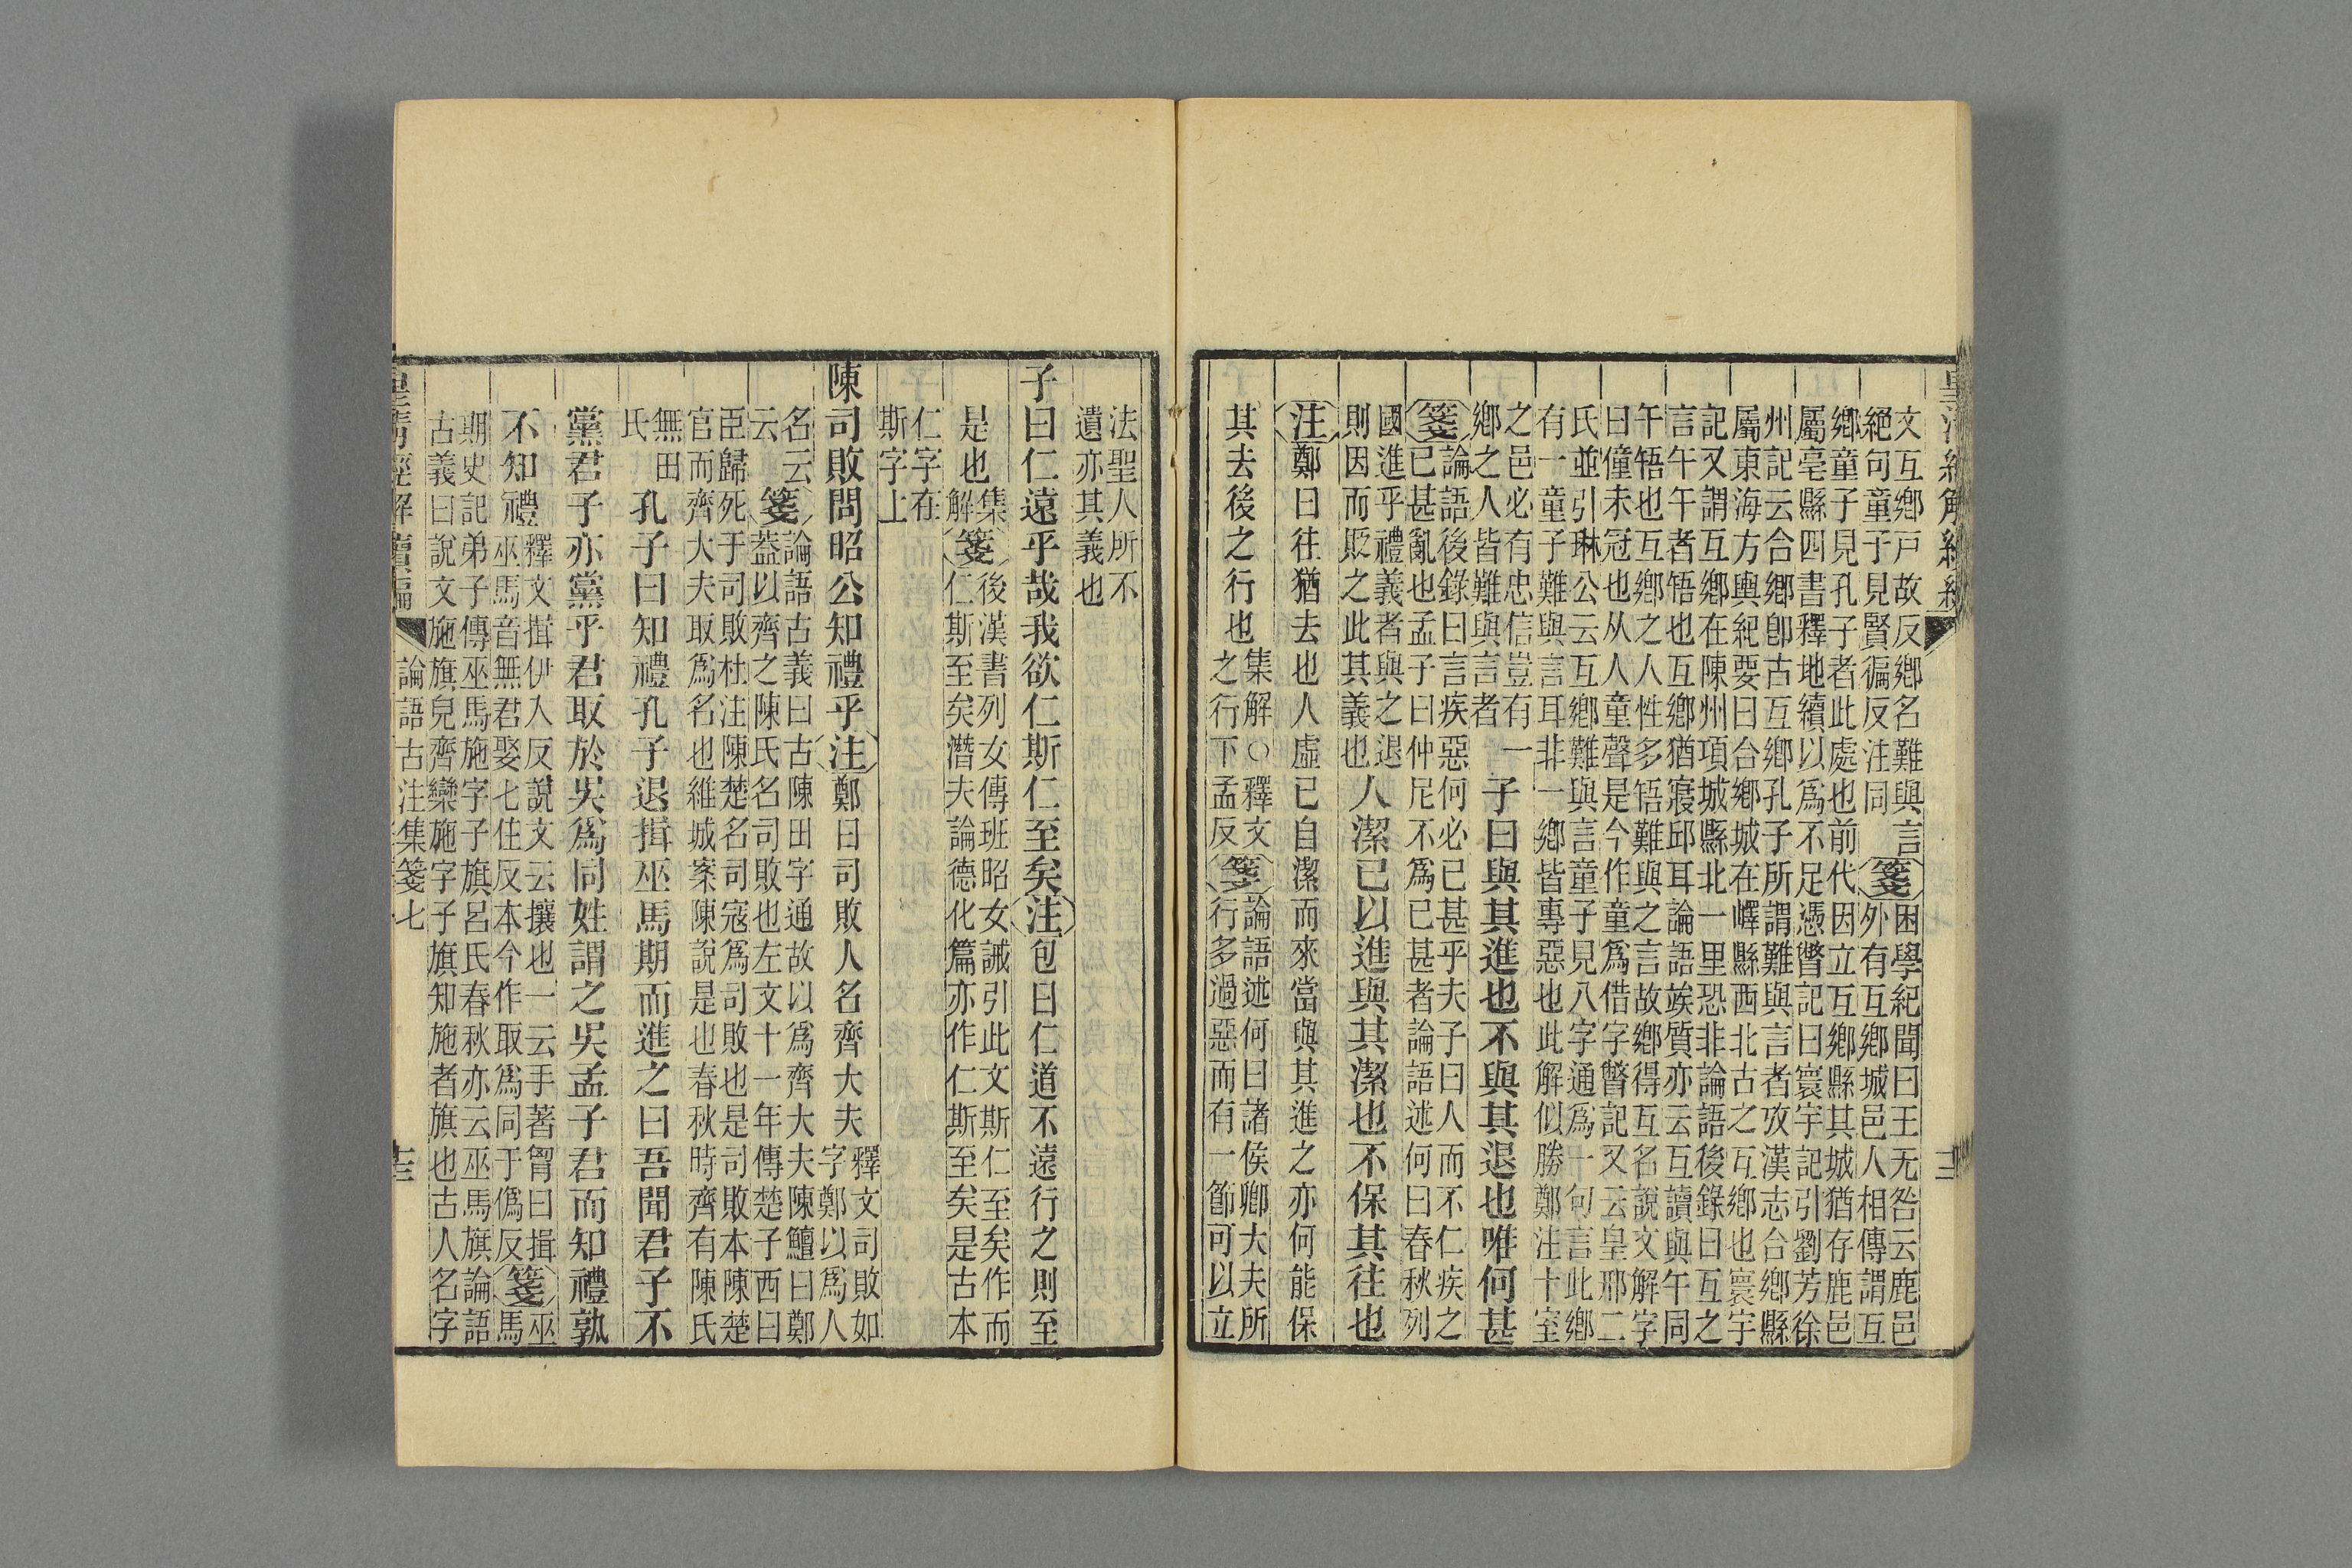 文互鄉戸故反鄉名難與言箋困學紀聞曰王无咎云鹿邑
絕句童子見賢徧反注同外有互鄉城邑人相傳謂互
鄉童子見孔子者此處也前代因立互鄉縣其城猶存鹿邑
屬亳縣四書釋地續以爲不足憑瞥記曰寰宇記引劉芳徐
州記云合鄉卽古互鄉孔子所謂難與言者攷漢志合鄉縣
屬東海方輿紀要曰合鄉城在嶧縣西北古之互鄉也寰宇
記又謂互鄉在陳州項城縣北一里恐非論語後錄曰互之
言午午者啎也互鄉猶寢邱耳論語竢質亦云互讀與午同
午啎也互鄉之人性多啎難與之言故鄉得互名說文解字
曰僮未冠也从人童聲是今作童爲借字瞥記又云皇邢二
氏並引琳公云互鄉難與言童子見八字通爲一句言此鄉
有一童子難與言耳非一鄉皆專惡也此解似勝鄭注十室
之邑必有忠信豈有一
鄉之人皆難與言者
子曰與其進也不與其退也唯何甚
箋論語後錄曰言疾惡何必已甚乎夫子曰人而不仁疾之
已甚亂也孟子曰仲尼不爲已甚者論語述何曰春秋列
國進乎禮義者與之退
則因而貶之此其義也
人潔已以進與其潔也不保其往也
注鄭曰往猶去也人虛已自潔而來當與其進之亦何能保
其去後之行也
集解○釋文
之行下孟反
箋論語述何曰諸侯卿大夫所
行多過惡而有一節可以立
法聖人所不
遺亦其義也
子曰仁遠乎哉我欲仁斯仁至矣注包曰仁道不遠行之則至
是也
集
解
箋後漢書列女傳班昭女誡引此文斯仁至矣作而
仁斯至矣潛夫論德化篇亦作仁斯至矣是古本
仁字在
斯字上
陳司敗問昭公知禮乎注鄭曰司敗人名齊大夫
釋文司敗如
字鄭以爲人
名云箋論語古義曰古陳田字通故以爲齊大夫陳鱣曰鄭
云蓋以齊之陳氏名司敗也左文十一年傳楚子西曰
臣歸死于司敗杜注陳楚名司寇爲司敗也是司敗本陳楚
官而齊大夫取爲名也維城案陳說是也春秋時齊有陳氏
無田
氏
孔子曰知禮孔子退揖巫馬期而進之曰吾聞君子不
黨君子亦黨乎君取於吳爲同姓謂之吳孟子君而知禮孰
不知禮
釋文揖伊入反說文云攘也一云手著胷曰揖
巫馬音無君娶七住反本今作取爲同于僞反
箋巫
馬
期史記弟子傳巫馬施字子旗呂氏春秋亦云巫馬旗論語
古義曰說文施旗皃齊欒施字子旗知施者旗也古人名字
皇清經解續編
論語古注集箋七
十三